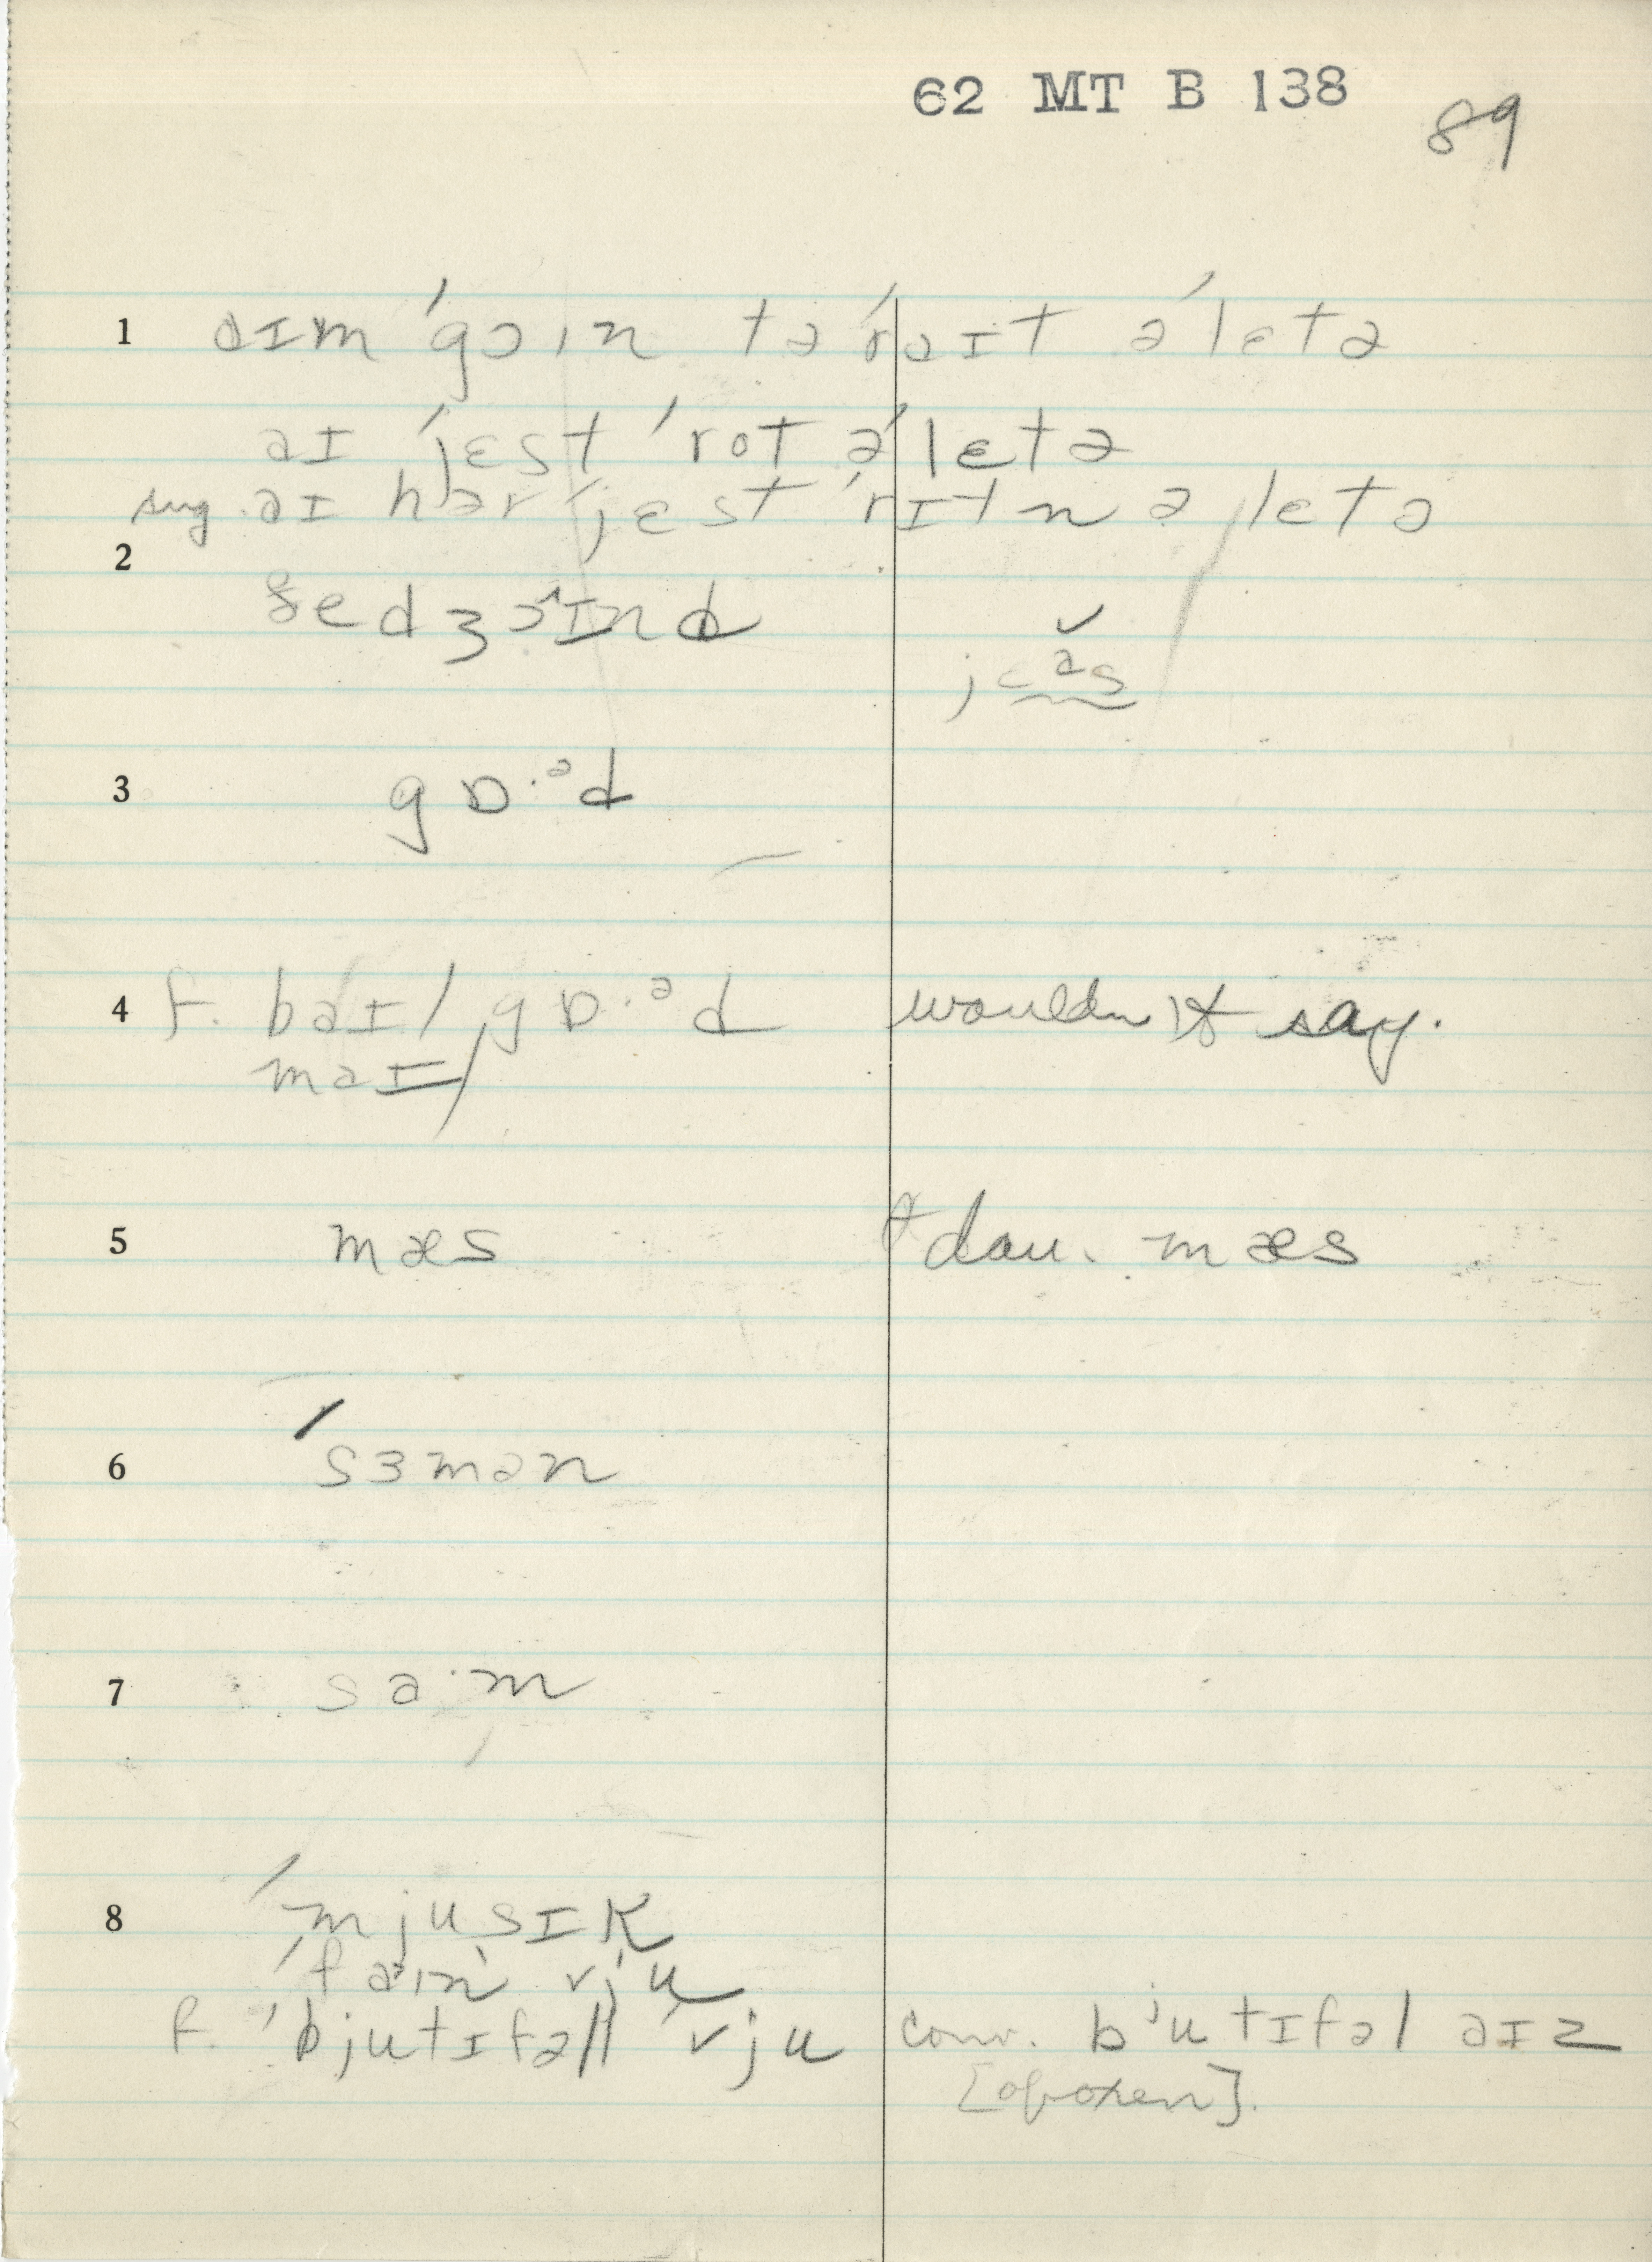 62 MT B 138
89
1 aɪm ˈgoɪn tə ˈraɪt ə ˈlɛtə
aɪ ˈjɛst ˈrot ə ˈlɛtə
sug. aɪ hər ˈjɛst ˈrɪtn ə lɛtə
2
jɛᵊs
3 gɒ·ᵊd
4 f. baɪ/gɒ·ᵊd wouldn't say.
maɪ/
5 mæs dau. mæs
6 ˈsɜmən
7 sa·m
8 ˈmjusɪk
ˈfaɪn vju
f. ˈbjutɪfəl ˈvju conv. bʲutɪfəl aɪz
[of oxen].